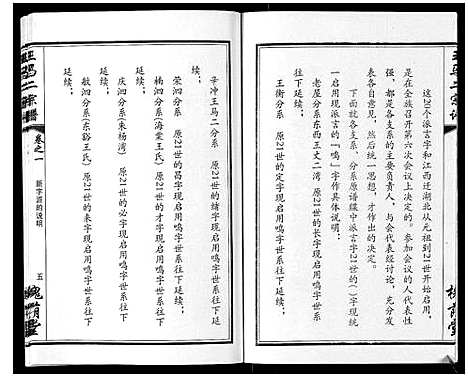 这20个派言字和江西迁湖北从元祖到21世开始启用，
是在全族召开第六次会议上决定的。参加会议的人代表性
强，都是各支系的主要负责人，与会代表经讨论，充分发
表各自意见，然后统一思想，才作出的决定。
下面就各支系、分系原谱续中派言字21世的（）字现统
一启用现派言的“鸣”字作具体说明：
老屋分系东西王丈二湾 原21世的长字现启用鸣字世
系往下延续；
王衡分系 原21世的 字现启用鸣字世系往下延续；
王冯二宗谱
槐荫堂
辛冲王马二分系 原21世的绪字现启用鸣字世系往下
延续；
荣泗分系 原21世的昌字现启用鸣字世系往下延续；
梯泗分系（海棠王氏） 原21世的才字现启用鸣字世系往下
延续；
庆泗分系（朱杨湾） 原21世的必字现启用鸣字世系往下
延续；
敏泗分系（东谿王氏） 原21世的来字现启用鸣字世系往下
延续；
王冯二宗谱
卷之一
新字派的说明
五
槐荫堂